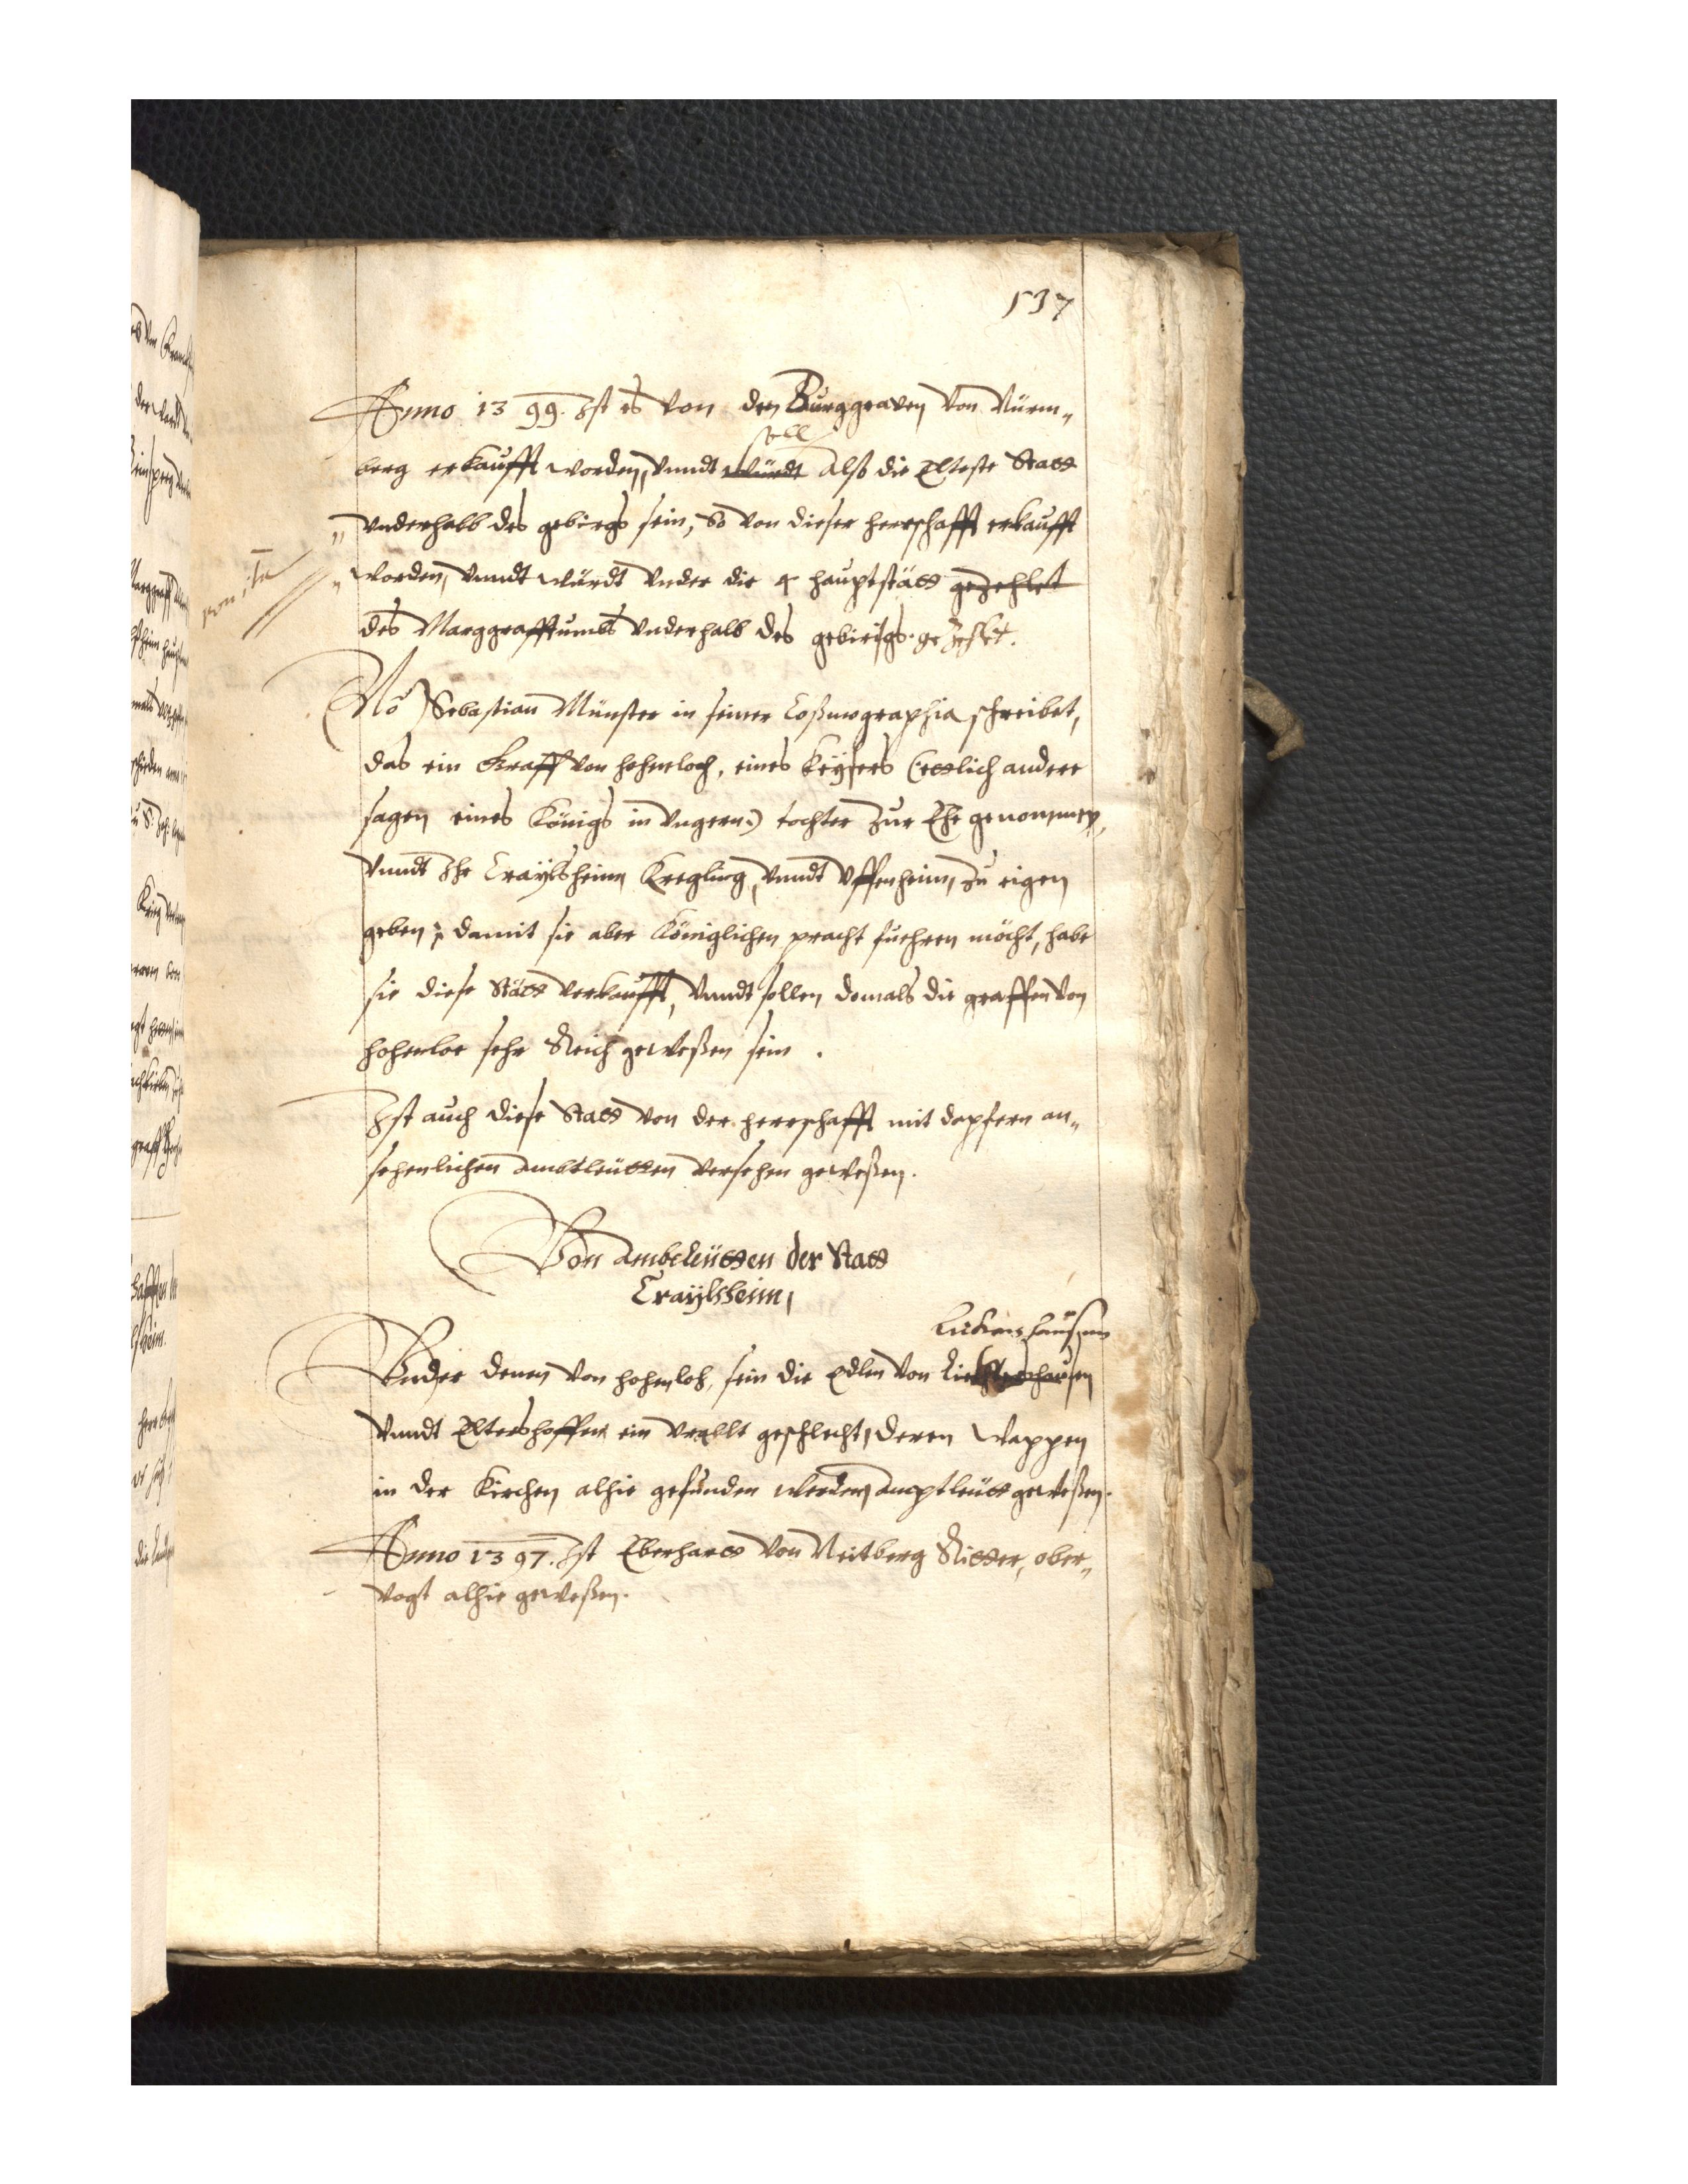 137
Anno 1399. Ist es von den Burggraven von Nürm„
berg erkaufft worden, vnndt würdt soll alß die Elteste Statt
vnderhalb des gebirgs sein, so von dieser herrschafft erkaufft
worden, vnndt würdt vnder die 4 hauptstätt gezehlet
des Marggrafftumbs vnderhalb des gebirgs gezehlet.
Sebastian Münster in seiner Coßmographia schreibet,
das ein Kraff von hohenloch, eines Keysers (ettlich andere
sagen eines Königs in Vngern) tochter zur Ehe genommen,
vnndt Ihr Craylsheim Kregling, vnndt Vffenheim, zu eigen
geben, damit sie aber Königlichen pracht fuehren möcht, habe
sie diese Stätt verkaufft, vnndt sollen domals die graffen von
hohenloe sehr Reich geweßen sein.
Ist auch diese Statt von der herrschafft mit dapfern an„
sehenlichen ambtleütten versehen geweßen.
Von Ambtleütten der Statt
Craylsheim,
Vnder denen von hohenloh, sein die Edlen von
vnndt Eltershoffen ein Vrallt geschlecht, deren Wappen
in der Kirchen alhie gefunden werden, amptleütt geweßen.
Anno 1397. Ist Eberhartt von Neitberg Ritter, ober„
vogt alhie geweßen.